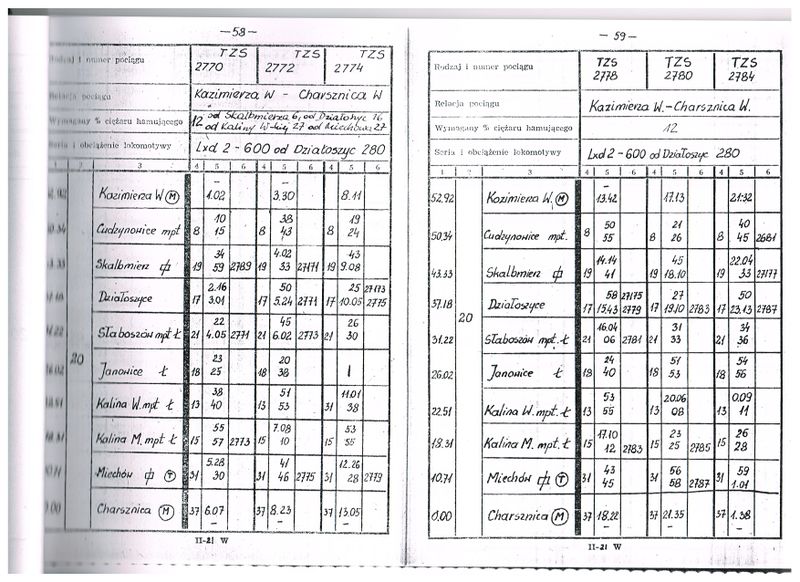 — 58 —
Rodzaj i numer pociągu TZS 2770 TZS 2772 TZS 2774
Relacja pociągu Kazimierza W - Charsznica W
Wymagany % ciężaru hamującego 12 od Skalbmierza 6, od Działoszyc 16
od Kaliny W-kiej 27 od Miechowa 27
Seria i obciążenie lokomotywy Lxd 2 - 600 od Działoszyc 280
1 2 3 4 5 6 4 5 6 4 5 6
Kazimierza W (M) — 1.02 — 3.30 8.11
10 38 19
Cudzynowice mpt 8 15 8 43 8 24
34 4.02 43
Skalbmierz 19 59 2789 19 33 27171 19 9.08
2.16 50 25 27173
Działoszyce 17 3.01 17 5.24 2771 17 10.05 2775
22 45 26
Słaboszów mpt Ł 21 4.05 2771 21 6.02 2773 21 30
20
23 20
Janowice Ł 18 25 18 38 |
38 51 11.01
Kalina W. mpt Ł 13 40 13 53 31 38
55 7.08 53
Kalina M. mpt Ł 15 57 2773 15 10 15 55
5.28 41 12.26
Miechów (T) 31 30 31 46 2775 31 28 2779
Charsznica (M) 37 6.07 37 8.23 37 13.05
— — —
II-21 W
— 59 —
Rodzaj i numer pociągu TZS 2778 TZS 2780 TZS 2784
Relacja pociągu Kazimierza W. - Charsznica W.
Wymagany % ciężaru hamującego 12
Seria i obciążenie lokomotywy Lxd 2 - 600 od Działoszyc 280
1 2 3 4 5 6 4 5 6 4 5 6
52.92 Kazimierza W. (M) — 13.42 17.13 21.32
50 21 40
50.34 Cudzynowice mpt. 8 55 8 26 8 45 2681
14.14 45 22.04
43.33 Skalbmierz 19 41 19 18.10 19 33 27177
58 27175 27 50
37.18 Działoszyce 17 15.43 2779 17 19.10 2783 17 23.13 2787
20
16.04 31 34
31.22 Słaboszów mpt. Ł 21 06 2781 21 33 21 36
24 51 54
26.02 Janowice Ł 19 40 18 53 18 56
53 20.06 0.09
22.51 Kalina W. mpt. Ł 13 55 13 08 13 11
17.10 23 26
18.31 Kalina M. mpt. Ł 15 12 2783 15 25 2785 15 28
43 56 59
10.71 Miechów (T) 31 45 31 58 2787 31 1.01
0.00 Charsznica (M) 37 18.22 37 21.35 37 1.38
— — —
II-21 W